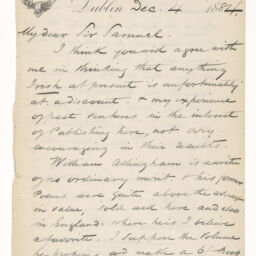 Dublin Dec. 4 1884
My dear Sir Samuel.
I think you will agree with
me in thinking that anything
Irish at present is unfortunately
at a discount. & my experience
of past ventures in the interest
of Publishing here, not very
encouraging in their results.
William Allingham is a writer
of no ordinary merit. & his former
Poems were quite above the average
in value, sold and here and also
in England. where he is I believe
a favorite. I suppose the Volume
he proposes and make a 6/- Book